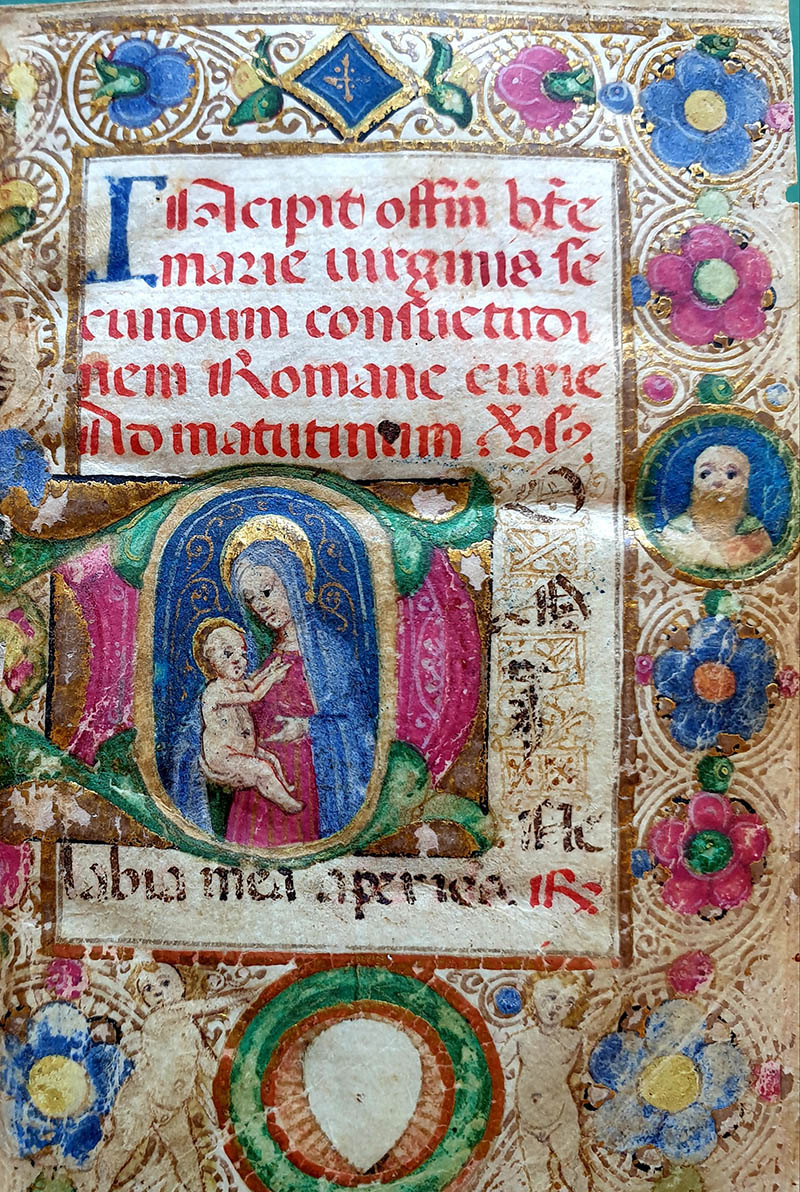 INcipit offm̄ bt̄e
marie uirginis se
cundum consuetudi
nem Romane curie
Ad matutinum
D
O
M
I
Ne
labia mea aperies. ℟